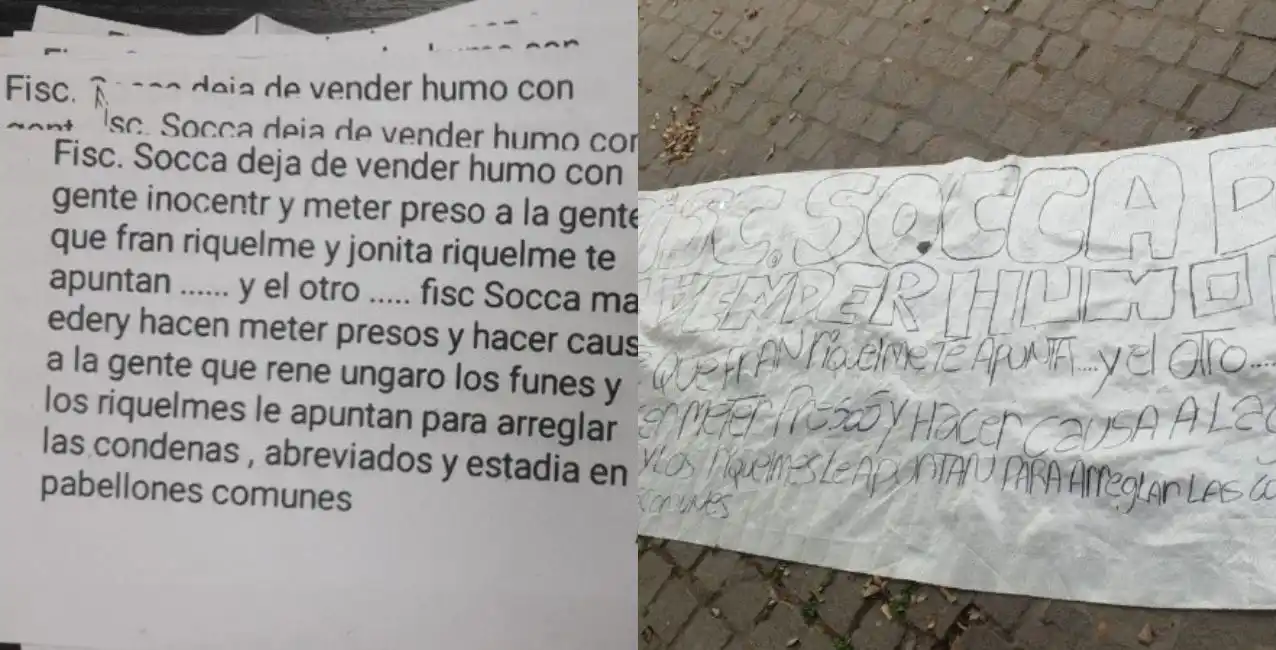 Fisc. deja de vender humo con
isc. Socca deja de vender humo con
Fisc. Socca deja de vender humo con
gente inocentr y meter preso a la gente
que fran riquelme y jonita riquelme te
apuntan ...... y el otro ..... fisc Socca ma
edery hacen meter presos y hacer caus
a la gente que rene ungaro los funes y
los riquelmes le apuntan para arreglar
las condenas , abreviados y estadia en
pabellones comunes
ISC. SOCCA D
VENDER HUMO
QUE FRAN RiquelmeTE APUNTA....y el OTRO....
en METER PresoS Y HAcer CAUSA A LA g
Y LOS RiqueLmes Le APUNTAN PARA ArregLAR LAS CO
comunes